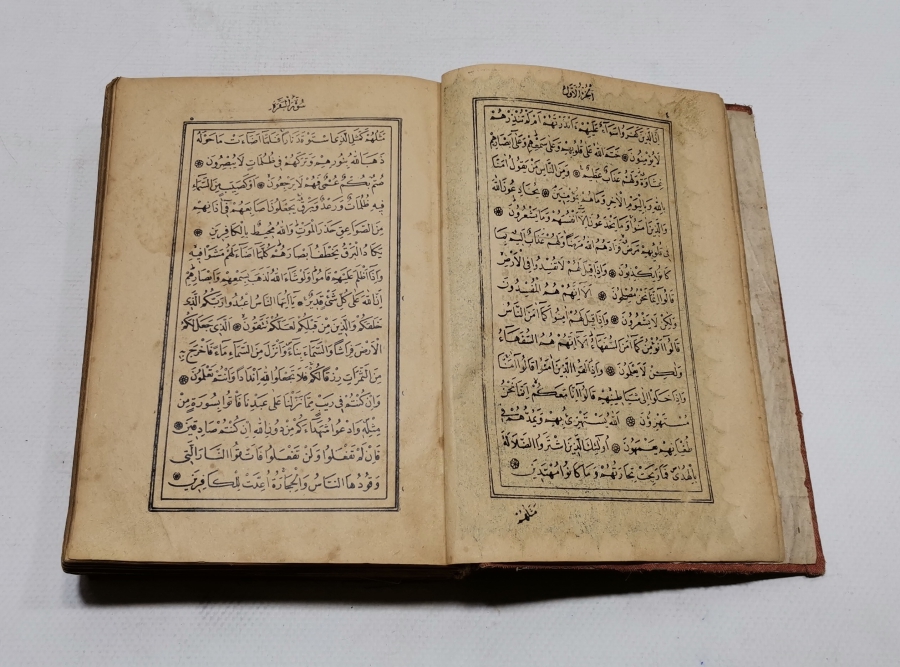 الجزء الاول
٤
اِنَّ الَّذِينَ كَفَرُوا سَوَاءٌ عَلَيْهِمْ ءَاَنْذَرْتَهُمْ اَمْ لَمْ تُنْذِرْهُمْ
لَا يُؤْمِنُونَ ۞ خَتَمَ اللهُ عَلَى قُلُوبِهِمْ وَعَلَى سَمْعِهِمْ وَعَلَى اَبْصَارِهِمْ
غِشَاوَةٌ وَلَهُمْ عَذَابٌ عَظِيمٌ ۞ وَمِنَ النَّاسِ مَنْ يَقُولُ اٰمَنَّا
بِاللهِ وَبِالْيَوْمِ الْاٰخِرِ وَمَا هُمْ بِمُؤْمِنِينَ ۞ يُخَادِعُونَ اللهَ
وَالَّذِينَ اٰمَنُوا وَمَا يَخْدَعُونَ اِلَّا اَنْفُسَهُمْ وَمَا يَشْعُرُونَ ۞
فِي قُلُوبِهِمْ مَرَضٌ فَزَادَهُمُ اللهُ مَرَضًا وَلَهُمْ عَذَابٌ اَلِيمٌ بِمَا
كَانُوا يَكْذِبُونَ ۞ وَاِذَا قِيلَ لَهُمْ لَا تُفْسِدُوا فِي الْاَرْضِ
قَالُوا اِنَّمَا نَحْنُ مُصْلِحُونَ ۞ اَلَا اِنَّهُمْ هُمُ الْمُفْسِدُونَ
وَلٰكِنْ لَا يَشْعُرُونَ ۞ وَاِذَا قِيلَ لَهُمْ اٰمِنُوا كَمَا اٰمَنَ النَّاسُ
قَالُوا اَنُؤْمِنُ كَمَا اٰمَنَ السُّفَهَاءُ اَلَا اِنَّهُمْ هُمُ السُّفَهَاءُ
وَلٰكِنْ لَا يَعْلَمُونَ ۞ وَاِذَا لَقُوا الَّذِينَ اٰمَنُوا قَالُوا اٰمَنَّا
وَاِذَا خَلَوْا اِلَى شَيَاطِينِهِمْ قَالُوا اِنَّا مَعَكُمْ اِنَّمَا نَحْنُ
مُسْتَهْزِؤُنَ ۞ اَللهُ يَسْتَهْزِئُ بِهِمْ وَيَمُدُّهُمْ فِي
طُغْيَانِهِمْ يَعْمَهُونَ ۞ اُولٰئِكَ الَّذِينَ اشْتَرَوُا الضَّلَالَةَ
بِالْهُدٰى فَمَا رَبِحَتْ تِجَارَتُهُمْ وَمَا كَانُوا مُهْتَدِينَ ۞
مَثَلُهُمْ
سورة البقرة
٥
مَثَلُهُمْ كَمَثَلِ الَّذِي اسْتَوْقَدَ نَارًا فَلَمَّا اَضَاءَتْ مَا حَوْلَهُ
ذَهَبَ اللهُ بِنُورِهِمْ وَتَرَكَهُمْ فِي ظُلُمَاتٍ لَا يُبْصِرُونَ ۞
صُمٌّ بُكْمٌ عُمْيٌ فَهُمْ لَا يَرْجِعُونَ ۞ اَوْ كَصَيِّبٍ مِنَ السَّمَاءِ
فِيهِ ظُلُمَاتٌ وَرَعْدٌ وَبَرْقٌ يَجْعَلُونَ اَصَابِعَهُمْ فِي اٰذَانِهِمْ
مِنَ الصَّوَاعِقِ حَذَرَ الْمَوْتِ وَاللهُ مُحِيطٌ بِالْكَافِرِينَ ۞
يَكَادُ الْبَرْقُ يَخْطَفُ اَبْصَارَهُمْ كُلَّمَا اَضَاءَ لَهُمْ مَشَوْا فِيهِ
وَاِذَا اَظْلَمَ عَلَيْهِمْ قَامُوا وَلَوْ شَاءَ اللهُ لَذَهَبَ بِسَمْعِهِمْ وَاَبْصَارِهِمْ
اِنَّ اللهَ عَلَى كُلِّ شَيْءٍ قَدِيرٌ ۞ يَا اَيُّهَا النَّاسُ اعْبُدُوا رَبَّكُمُ الَّذِي
خَلَقَكُمْ وَالَّذِينَ مِنْ قَبْلِكُمْ لَعَلَّكُمْ تَتَّقُونَ ۞ اَلَّذِي جَعَلَ لَكُمُ
الْاَرْضَ فِرَاشًا وَالسَّمَاءَ بِنَاءً وَاَنْزَلَ مِنَ السَّمَاءِ مَاءً فَاَخْرَجَ بِهِ
مِنَ الثَّمَرَاتِ رِزْقًا لَكُمْ فَلَا تَجْعَلُوا لِلّٰهِ اَنْدَادًا وَاَنْتُمْ تَعْلَمُونَ ۞
وَاِنْ كُنْتُمْ فِي رَيْبٍ مِمَّا نَزَّلْنَا عَلَى عَبْدِنَا فَأْتُوا بِسُورَةٍ مِنْ
مِثْلِهِ وَادْعُوا شُهَدَاءَكُمْ مِنْ دُونِ اللهِ اِنْ كُنْتُمْ صَادِقِينَ ۞
فَاِنْ لَمْ تَفْعَلُوا وَلَنْ تَفْعَلُوا فَاتَّقُوا النَّارَ الَّتِي
وَقُودُهَا النَّاسُ وَالْحِجَارَةُ اُعِدَّتْ لِلْكَافِرِينَ ۞